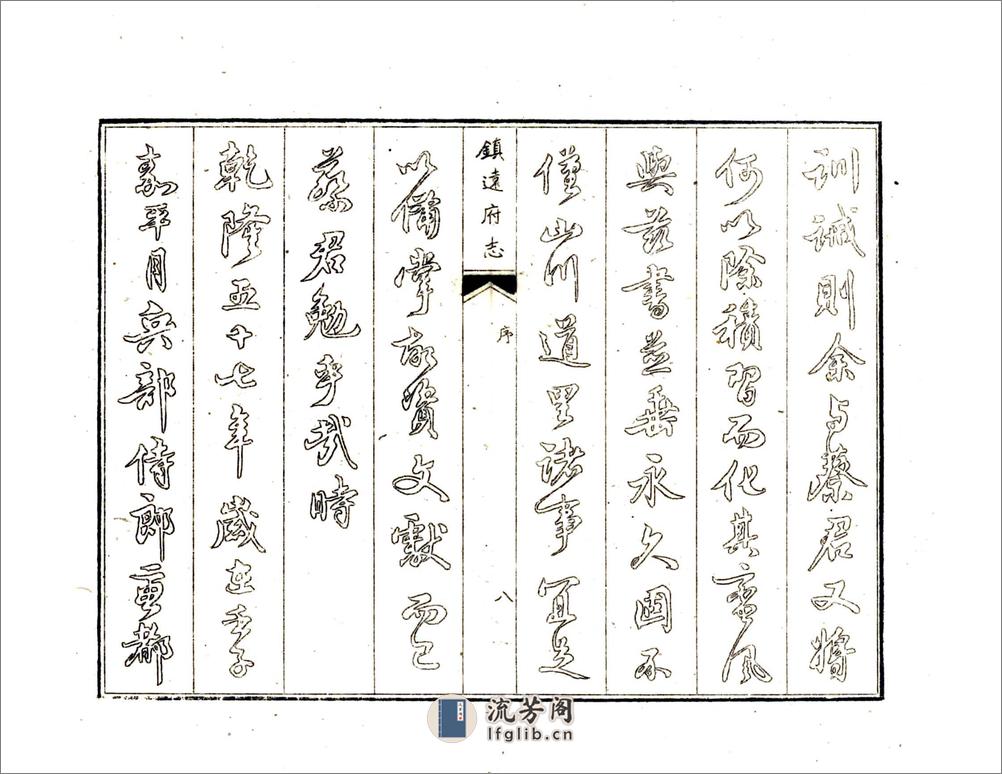 訓誡則余与蔡君又將
何以除積習而化其蠻風
與茲書並垂永久固不
僅山川道里諸事宜足
鎮遠府志
序
八
以備掌故資文獻而已
蔡君勉乎哉時
乾隆五十七年歲在壬子
嘉平月兵部侍郎兼都
流芳阁
lfglib.cn